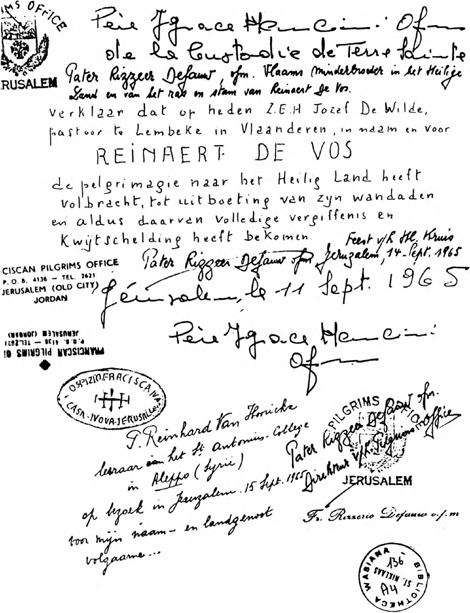 IMS OFFICE
JERUSALEM
Père Ignace Mancini Ofm
de la Custodie de Terre Sainte
Pater Rizzeer Defauw, ofm. Vlaams Minderbroeder in het Heilige
Land en van het ras en stam van Reinaert De Vos.
verklaar dat op heden Z.E.H Jozef De Wilde,
pastoor te Lembeke in Vlaanderen, in naam en voor
REINAERT DE VOS
de pelgrimagie naar het Heilig Land heeft
volbracht, tot uitboeting van zyn wandaden
en aldus daarvan volledige vergiffenis en
Kwijtschelding heeft bekomen.
Feest v/h Hl. Kruis
Pater Rizzeer Defauw ofm Jeruzalem, 14-Sept. 1965
CISCAN PILGRIMS OFFICE
P. O. B. 4136 — TEL. 2621
JERUSALEM (OLD CITY)
JORDAN
Jérusalem, le 11 Sept. 1965
Père Ignace Mancini
Ofm
FRANCISCAN PILGRIMS OF
P.O.B. 4136 — TEL.2621
JERUSALEM (JORDAN)
OSPIZIO FRACISCANA
CASA-NOVA JERUSALE
G. Reinhard Van
leraar aan het St Antonius-College
in Aleppo (Syrie)
op bezoek in Jeruzalem. 15 Sept. 1965
voor mijn naam- en landgenoot
volgaarne...
PILGRIMS OFFICE
JERUSALEM
Pater Rizzeer Defauw ofm.
Direkteur v/h Pilgrims-office
Fr. Rizzerio Defauw o.f.m
WABIANA - BIBLIOTHECA
ST. NIKLAAS
136
A4